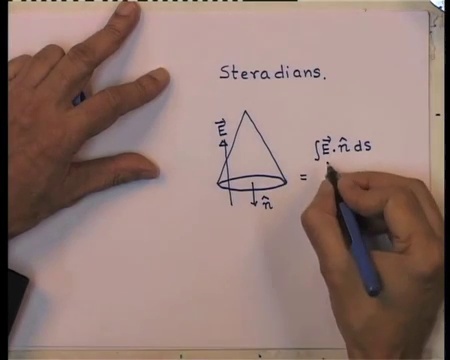 Steradians.
E⃗
∫E⃗.n̂ ds
=
n̂